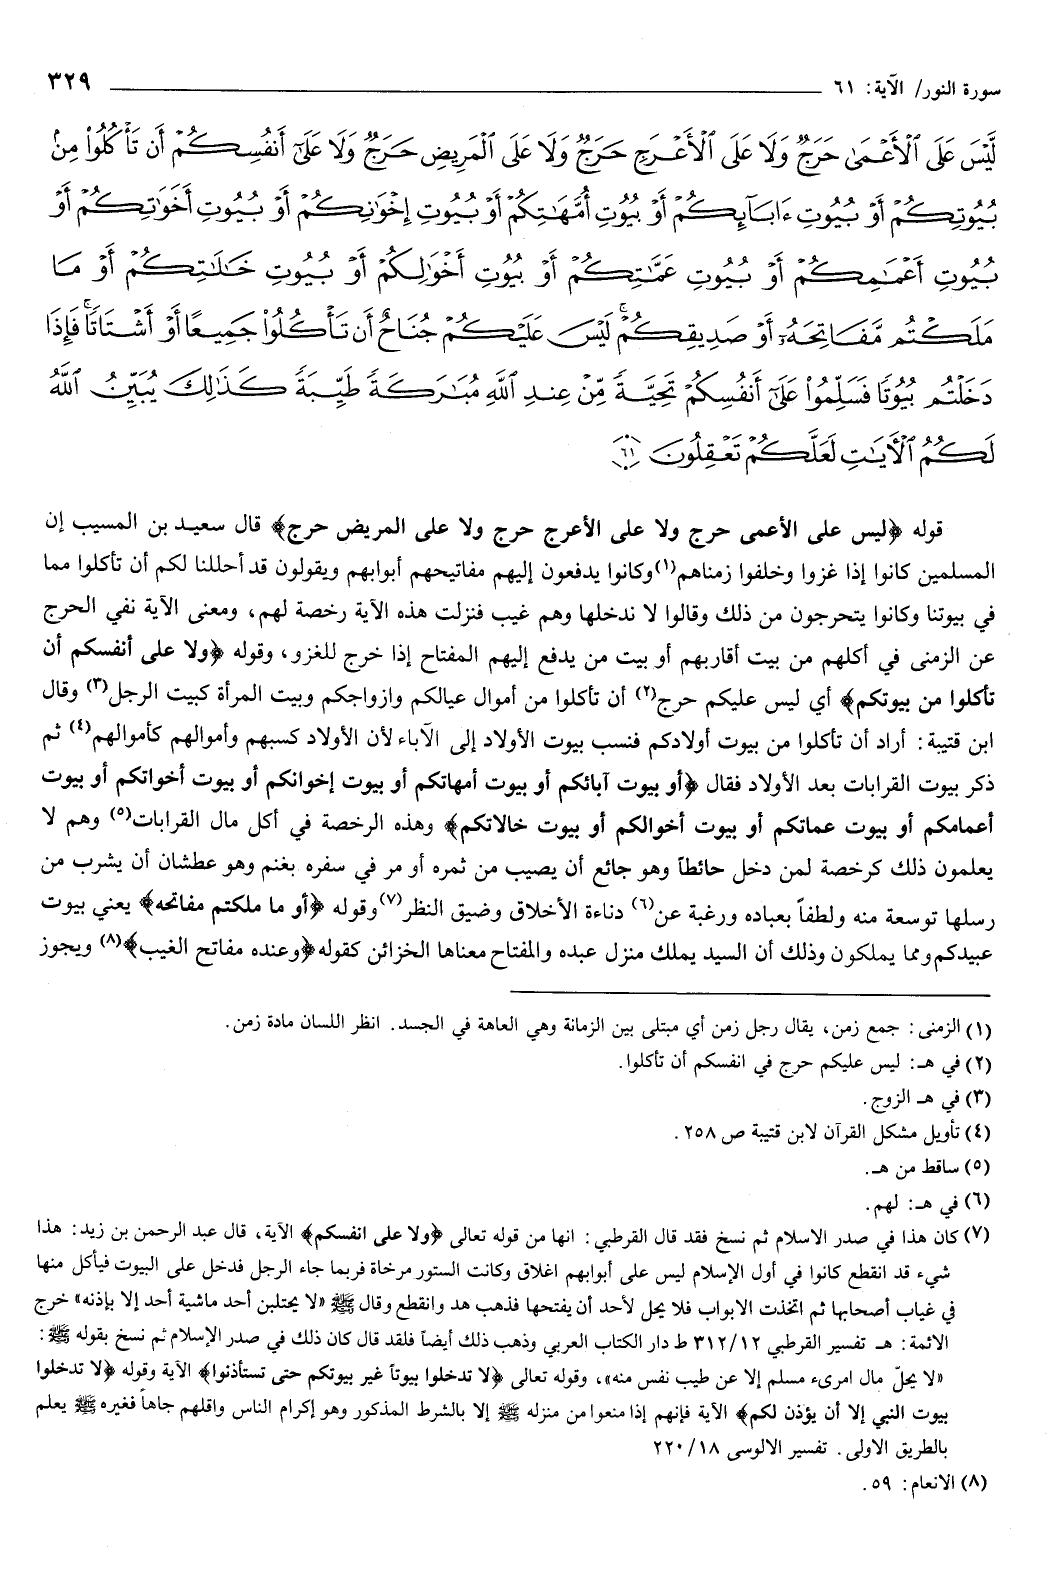 سورة النور/ الآية: ٦١ ٣٢٩
لَّيْسَ عَلَى ٱلْأَعْمَىٰ حَرَجٌ وَلَا عَلَى ٱلْأَعْرَجِ حَرَجٌ وَلَا عَلَى ٱلْمَرِيضِ حَرَجٌ وَلَا عَلَىٰٓ أَنفُسِكُمْ أَن تَأْكُلُوا۟ مِنۢ
بُيُوتِكُمْ أَوْ بُيُوتِ ءَابَآئِكُمْ أَوْ بُيُوتِ أُمَّهَـٰتِكُمْ أَوْ بُيُوتِ إِخْوَٰنِكُمْ أَوْ بُيُوتِ أَخَوَٰتِكُمْ أَوْ
بُيُوتِ أَعْمَـٰمِكُمْ أَوْ بُيُوتِ عَمَّـٰتِكُمْ أَوْ بُيُوتِ أَخْوَٰلِكُمْ أَوْ بُيُوتِ خَـٰلَـٰتِكُمْ أَوْ مَا
مَلَكْتُم مَّفَاتِحَهُۥٓ أَوْ صَدِيقِكُمْ ۚ لَيْسَ عَلَيْكُمْ جُنَاحٌ أَن تَأْكُلُوا۟ جَمِيعًا أَوْ أَشْتَاتًا ۚ فَإِذَا
دَخَلْتُم بُيُوتًا فَسَلِّمُوا۟ عَلَىٰٓ أَنفُسِكُمْ تَحِيَّةً مِّنْ عِندِ ٱللَّهِ مُبَـٰرَكَةً طَيِّبَةً ۚ كَذَٰلِكَ يُبَيِّنُ ٱللَّهُ
لَكُمُ ٱلْـَٔايَـٰتِ لَعَلَّكُمْ تَعْقِلُونَ ٦١
قوله ﴿ليس على الأعمى حرج ولا على الأعرج حرج ولا على المريض حرج﴾ قال سعيد بن المسيب إن
المسلمين كانوا إذا غزوا وخلفوا زمناهم(١) وكانوا يدفعون إليهم مفاتيحهم أبوابهم ويقولون قد أحللنا لكم أن تأكلوا مما
في بيوتنا وكانوا يتحرجون من ذلك وقالوا لا ندخلها وهم غيب فنزلت هذه الآية رخصة لهم، ومعنى الآية نفي الحرج
عن الزمنى في أكلهم من بيت أقاربهم أو بيت من يدفع إليهم المفتاح إذا خرج للغزو، وقوله ﴿ولا على أنفسكم أن
تأكلوا من بيوتكم﴾ أي ليس عليكم حرج(٢) أن تأكلوا من أموال عيالكم وازواجكم وبيت المرأة كبيت الرجل(٣) وقال
ابن قتيبة: أراد أن تأكلوا من بيوت أولادكم فنسب بيوت الأولاد إلى الآباء لأن الأولاد كسبهم وأموالهم كأموالهم(٤) ثم
ذكر بيوت القرابات بعد الأولاد فقال ﴿أو بيوت آبائكم أو بيوت أمهاتكم أو بيوت إخوانكم أو بيوت أخواتكم أو بيوت
أعمامكم أو بيوت عماتكم أو بيوت أخوالكم أو بيوت خالاتكم﴾ وهذه الرخصة في أكل مال القرابات(٥) وهم لا
يعلمون ذلك كرخصة لمن دخل حائطاً وهو جائع أن يصيب من ثمره أو مر في سفره بغنم وهو عطشان أن يشرب من
رسلها توسعة منه ولطفاً بعباده ورغبة عن(٦) دناءة الأخلاق وضيق النظر(٧) وقوله ﴿أو ما ملكتم مفاتحه﴾ يعني بيوت
عبيدكم ومما يملكون وذلك أن السيد يملك منزل عبده والمفتاح معناها الخزائن كقوله ﴿وعنده مفاتح الغيب﴾(٨) ويجوز
(١) الزمنى: جمع زمن، يقال رجل زمن أي مبتلى بين الزمانة وهي العاهة في الجسد. انظر اللسان مادة زمن.
(٢) في هـ: ليس عليكم حرج في انفسكم أن تأكلوا.
(٣) في هـ الزوج.
(٤) تأويل مشكل القرآن لابن قتيبة ص ٢٥٨.
(٥) ساقط من هـ.
(٦) في هـ: لهم.
(٧) كان هذا في صدر الاسلام ثم نسخ فقد قال القرطبي: انها من قوله تعالى ﴿ولا على انفسكم﴾ الآية، قال عبد الرحمن بن زيد: هذا
شيء قد انقطع كانوا في أول الإسلام ليس على أبوابهم اغلاق وكانت الستور مرخاة فربما جاء الرجل فدخل على البيوت فيأكل منها
في غياب أصحابها ثم اتخذت الابواب فلا يحل لأحد أن يفتحها فذهب هد وانقطع وقال ﷺ «لا يحتلبن أحد ماشية أحد إلا بإذنه» خرج
الائمة: هـ تفسير القرطبي ٣١٢/١٢ ط دار الكتاب العربي وذهب ذلك أيضاً فلقد قال كان ذلك في صدر الإسلام ثم نسخ بقوله ﷺ:
«لا يحلّ مال امرىء مسلم إلا عن طيب نفس منه»، وقوله تعالى ﴿لا تدخلوا بيوتاً غير بيوتكم حتى تستأذنوا﴾ الآية وقوله ﴿لا تدخلوا
بيوت النبي إلا أن يؤذن لكم﴾ الآية فإنهم إذا منعوا من منزله ﷺ إلا بالشرط المذكور وهو إكرام الناس واقلهم جاهاً فغيره ﷺ يعلم
بالطريق الاولى. تفسير الالوسى ٢٢٠/١٨
(٨) الانعام: ٥٩.